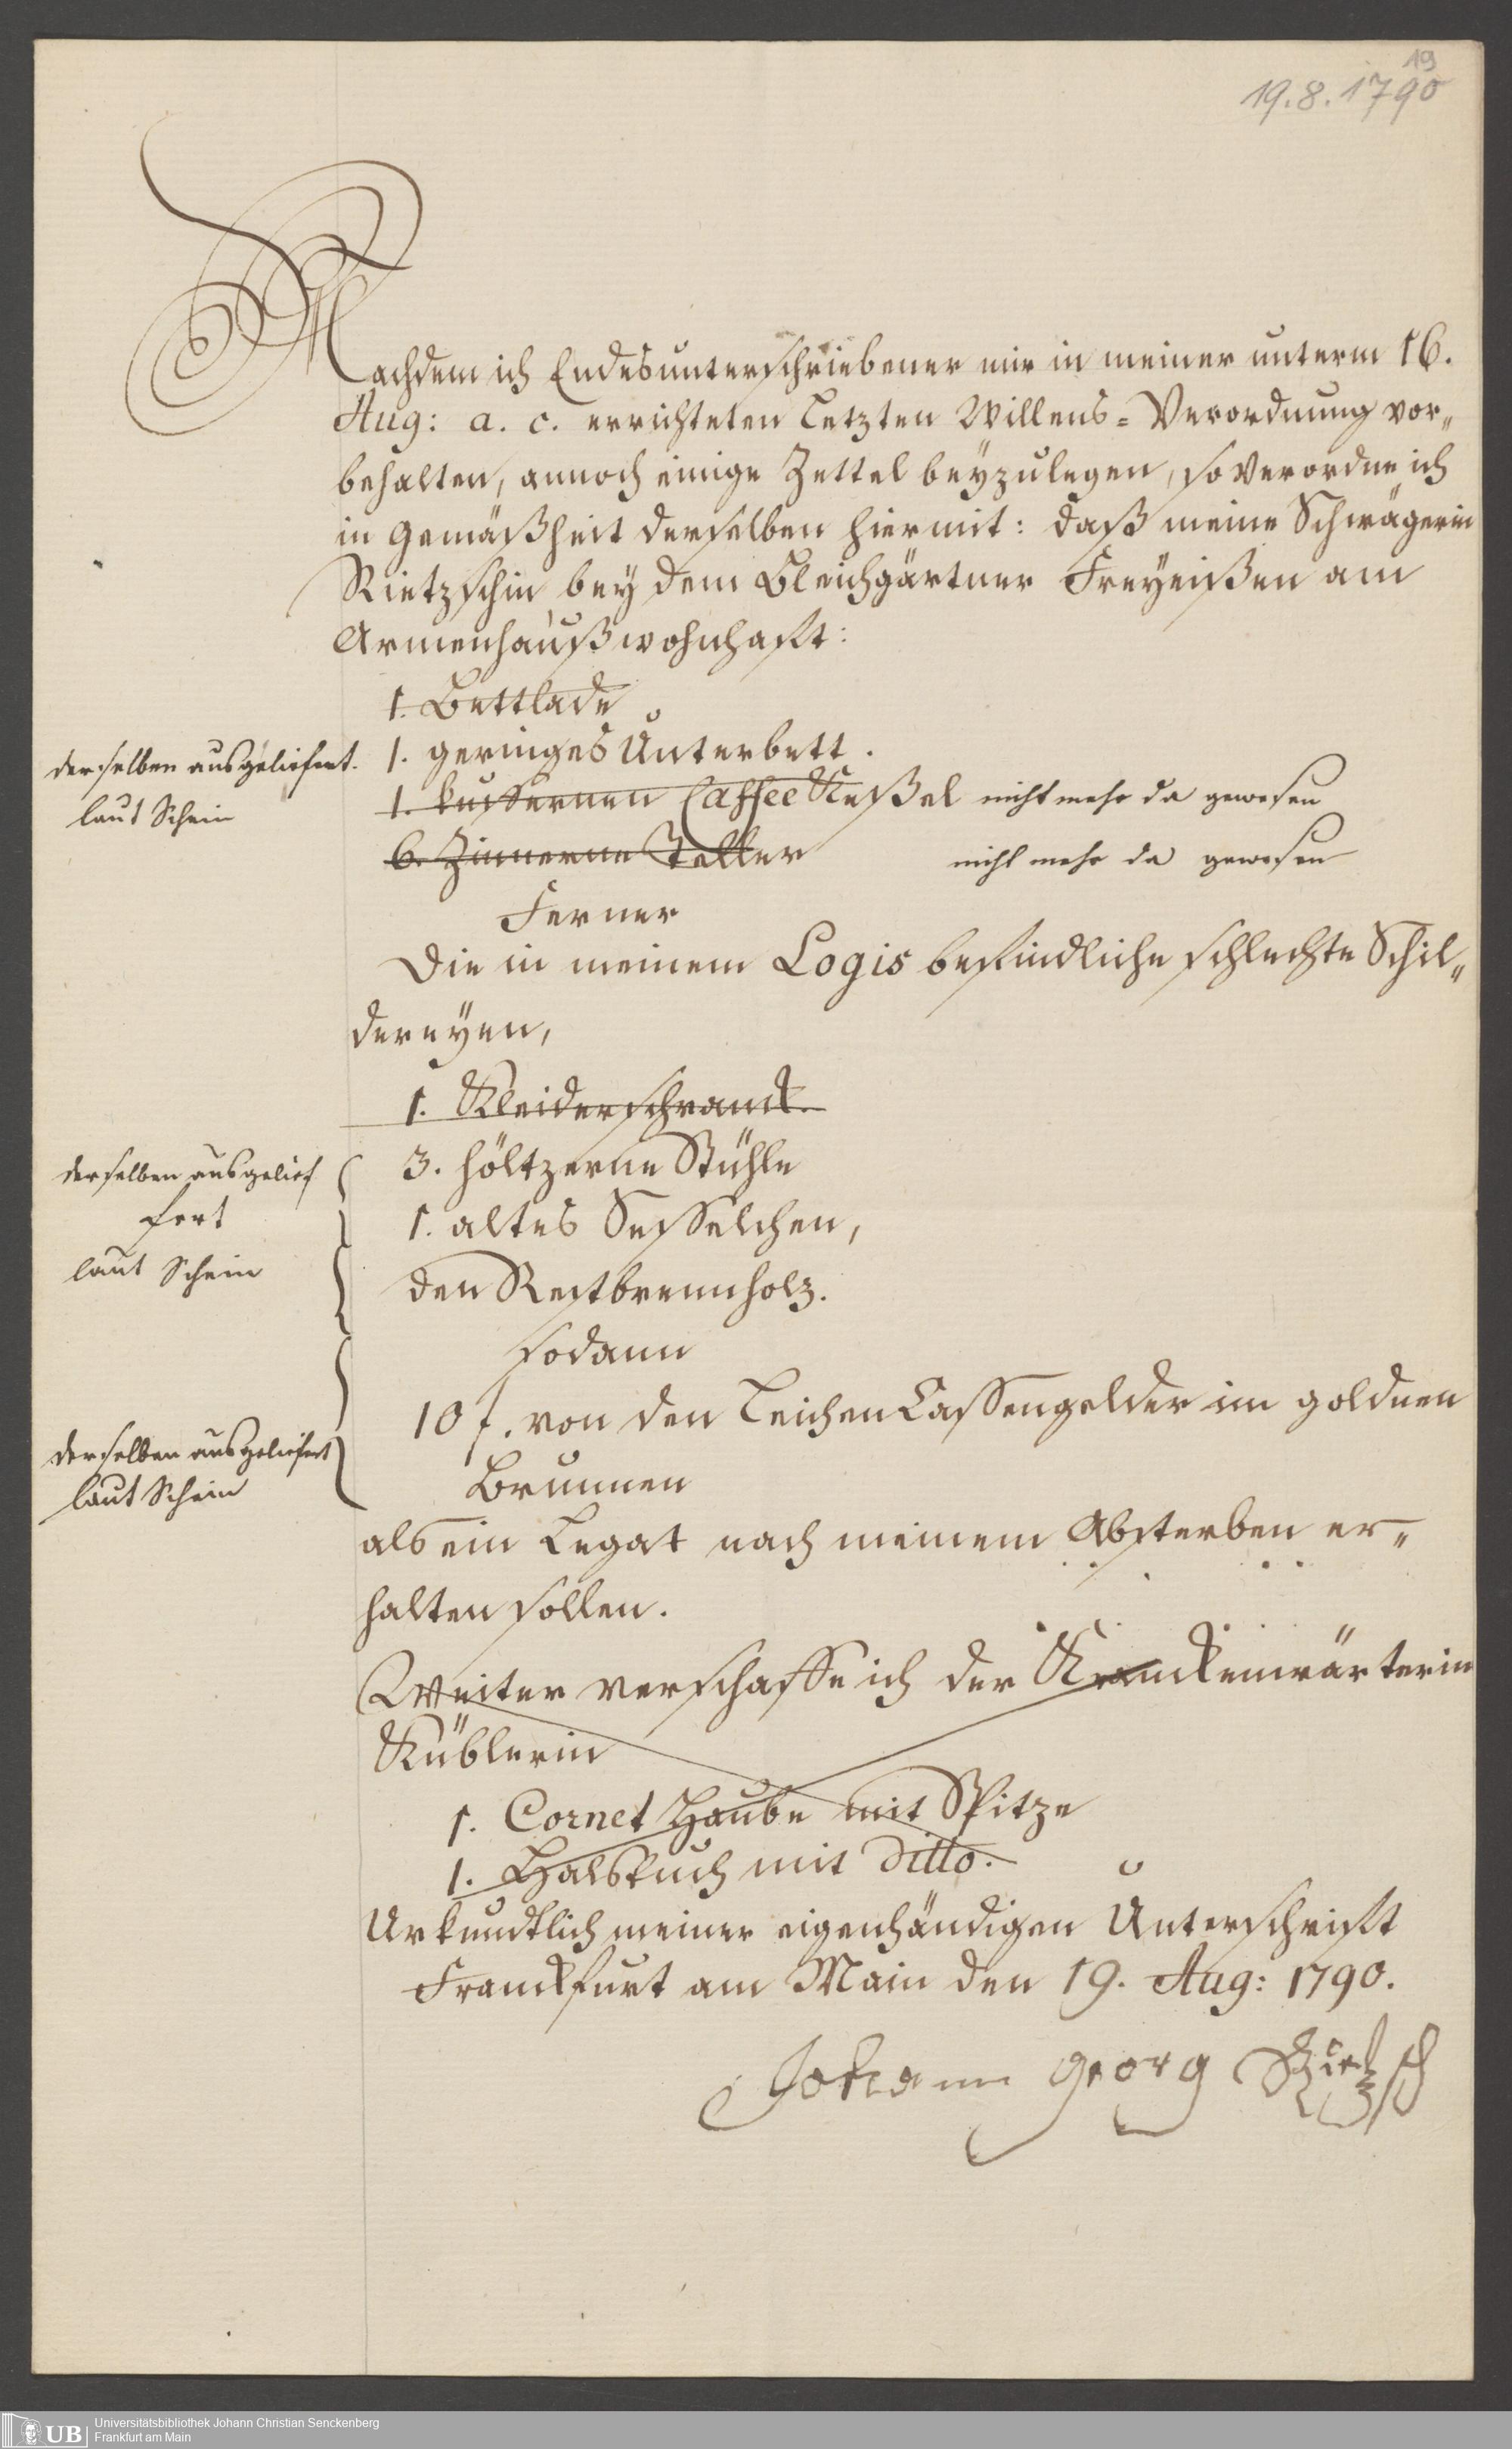 19
19.8.1790
Nachdem ich Endesunterschriebener mir in meiner unterm 16.
Aug: a. c. errichteten Letzten Willens=Verordnung vor„
behalten, annoch einige Zettel beyzulegen, so verordne ich
in Gemäßheit derselben hiermit: daß meine Schwägerin
Rietzschin bey dem Bleichgärtner Freyeißen am
Armenhauß wohnhafft:
1. Bettlade
1. geringes Unterbett.
derselben ausgeliefert.
laut Schein
1. kupffernen Caffee Keßel nicht mehr da gewesen
6. Zinnerne Teller nicht mehr da gewesen
Ferner
Die in meinem Logis befindliche schlechte Schil„
dereyen,
1. Kleiderschranck.
3. höltzerne Stühle
derselben ausgelief
fert
laut Schein
1. altes Sesselchen,
den Rest brennholz.
sodann
10 f. von den Leichen Cassengelder im goldnen
Brunnen
derselben ausgeliefert
laut Schein
als ein Legat nach meinem Absterben er„
halten sollen.
Weiter verschaffe ich der Kranckenwärterin
Küblerin
1. Cornet Haube mit Spitze
1. Halstuch mit ditto.
Urkundtlich meiner eigenhändigen Unterschrifft
Franckfurt am Main den 19. Aug: 1790.
Johann Georg Rietzsch
UB
Universitätsbibliothek Johann Christian Senckenberg
Frankfurt am Main